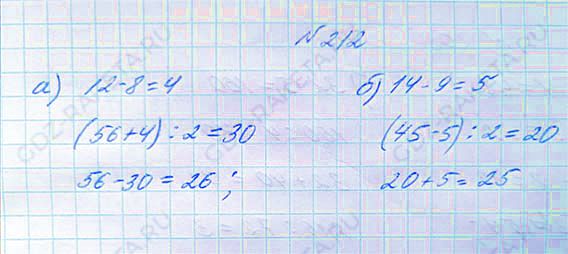 № 212
а) 12-8=4 б) 14-9=5
(56+4):2=30 (45-5):2=20
56-30=26; 20+5=25
GDZ-RAKETA.RU